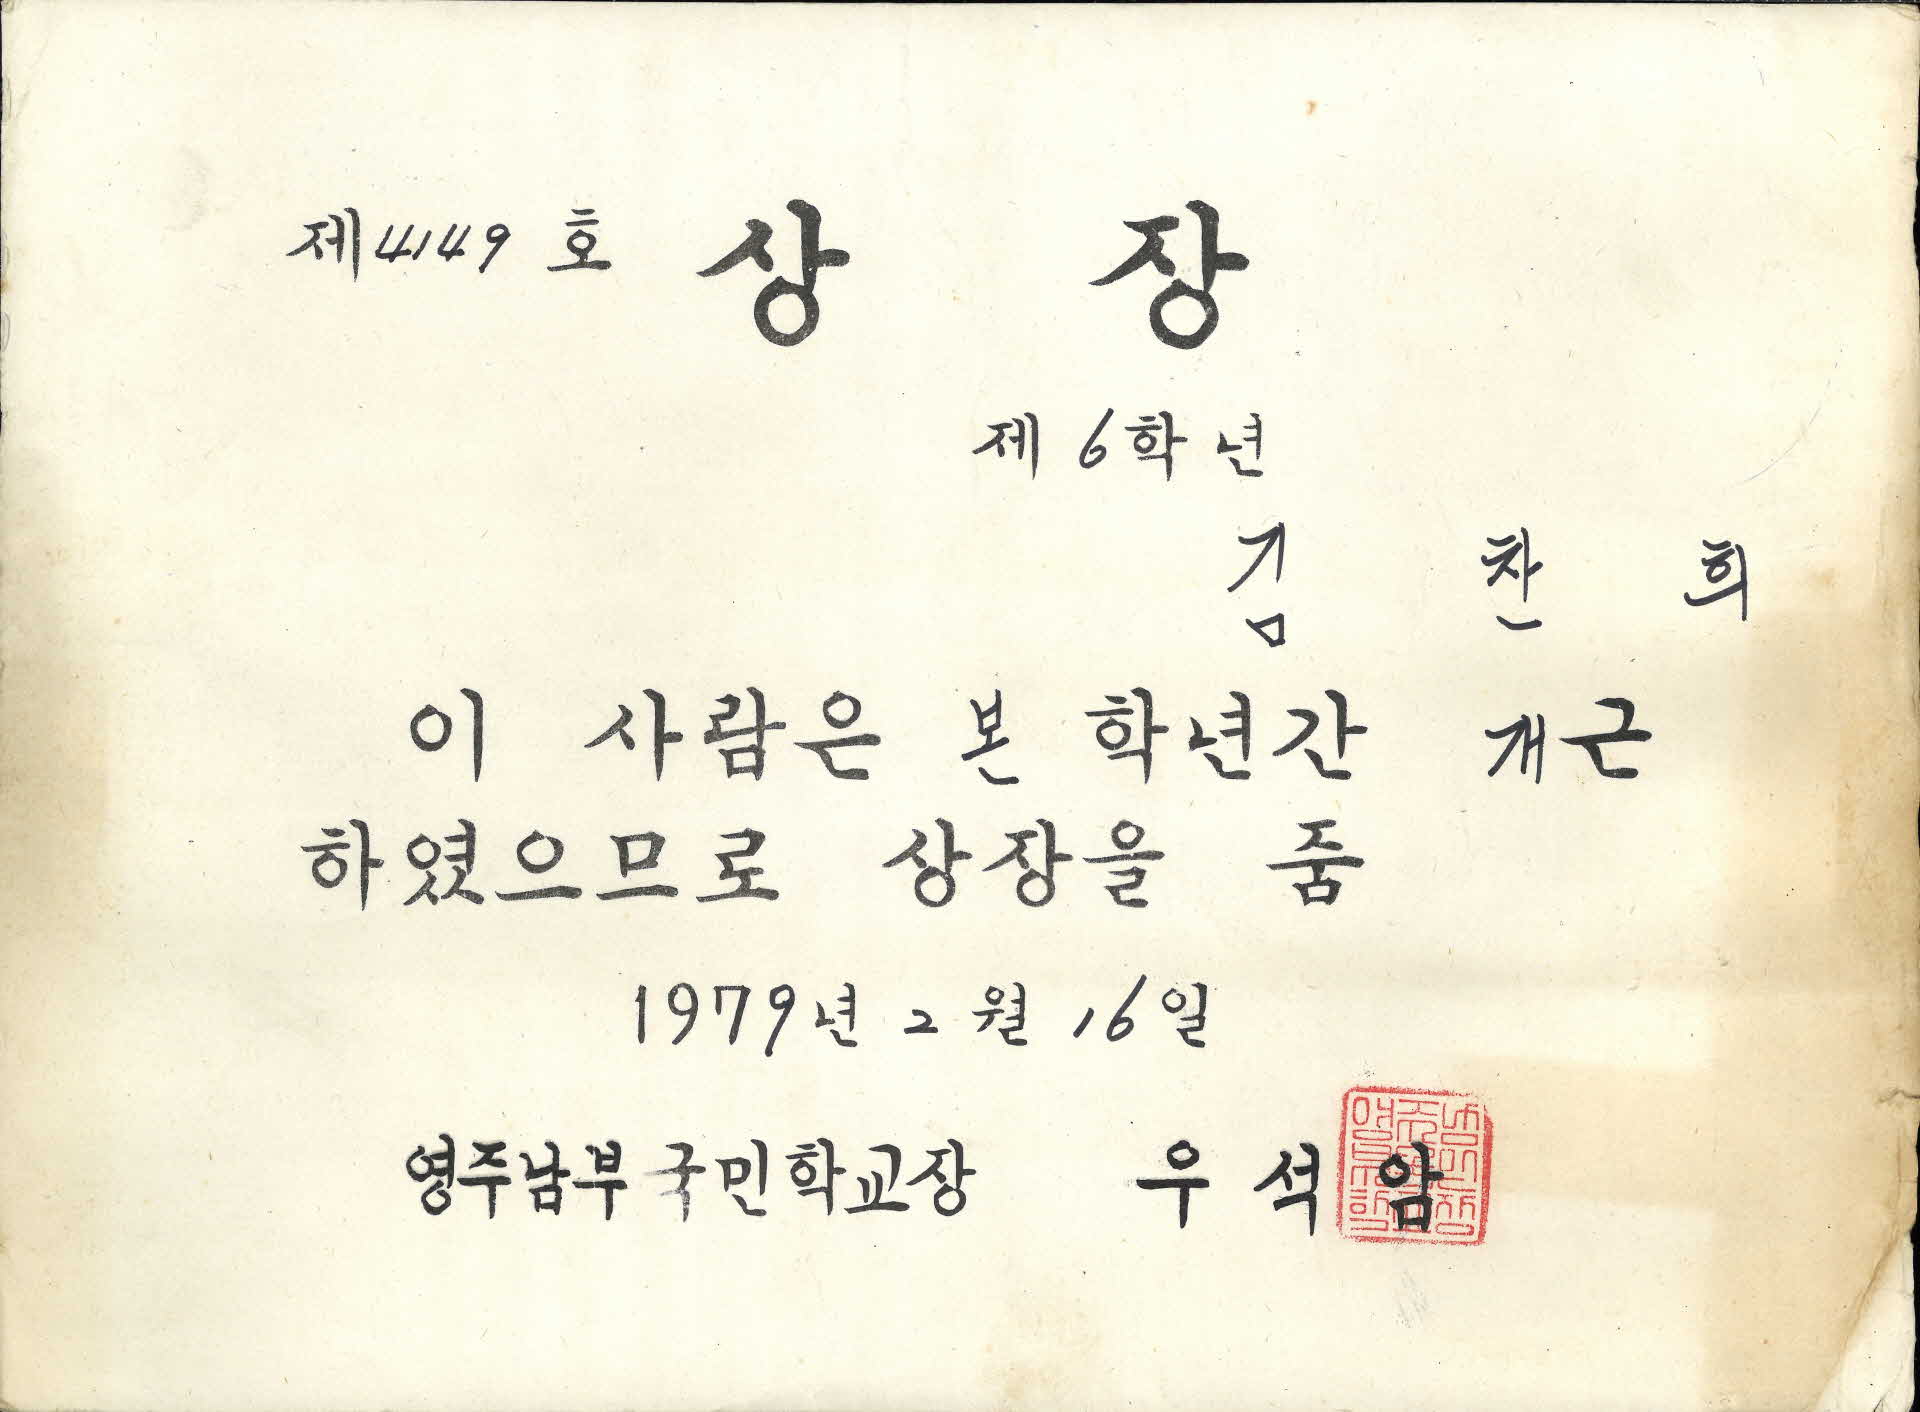 제4149 호 상 장
제 6 학 년
김 찬 희
이 사람은 본 학년간 개근
하였으므로 상장을 줌
1979년 2 월 16 일
영주남부 국민학교장 우 석 암